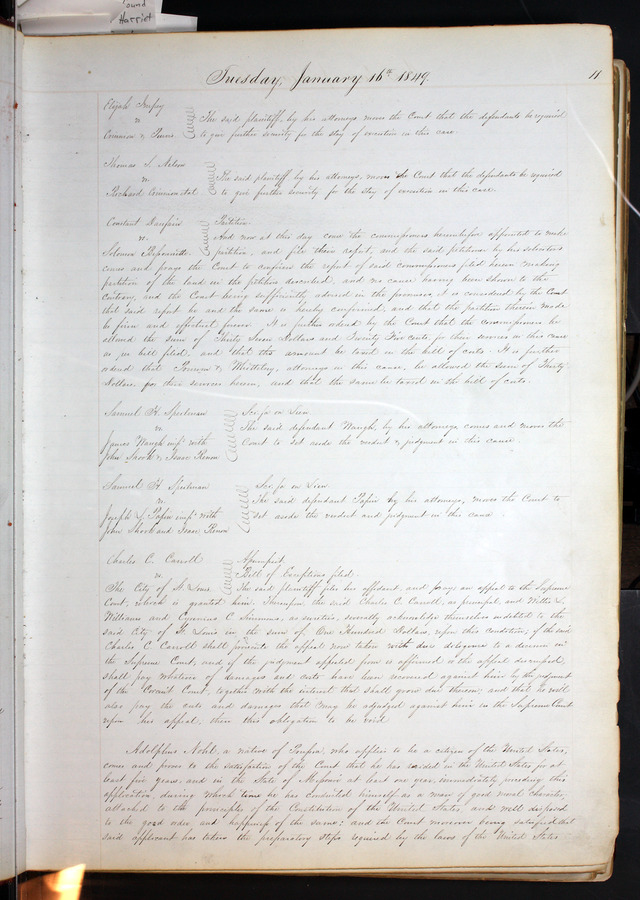 ound
Harriet
Tuesday, January 16th 1849. 11
Elijah
vs
The said plaintiff, by his attorney moves the Court that the defendants be required
to give further security for the stay of execution in this case.
Thomas L. Nelson
vs.
The said plaintiff by his attorney, moves the Court that the defendants be required
Richard
to give further security for the stay of execution in this case.
Constant
vs.
Solomon
Petition.
And now at this day come the commissioners heretofore appointed to make
partition, and file their report, and the said petitioner by his solicitors
comes and prays the Court to confirm the report of said commissioners filed herein making
partition of the land in the petition described, and no cause having been shown to the
contrary, and the Court being sufficiently advised in the premises, it is considered by the Court
that said report be and the same is hereby confirmed, and that the partition therein made
be firm and effectual forever. It is further ordered by the Court that the commissioners be
allowed the sum of Thirty Seven Dollars and Twenty Five cents, for their services in this cause
as per bill filed, and that the amount be taxed in the bill of costs. It is further
ordered that & Whittelsey, attorneys in this cause, be allowed the sum of Thirty
Dollars, for their services herein, and that the same be taxed in the bill of costs.
Samuel H. Spielman
vs.
James Waugh impd. with
John Shock & Isaac
Sci. fa. on Lien
The said defendant Waugh, by his attorney comes and moves the
Court to set aside the verdict & judgment in this cause.
Samuel H. Spielman
vs.
Joseph L. Papin impd. with
John Shock and Isaac
Sci. fa. on Lien.
The said defendant Papin by his attorney, moves the Court to
set aside the verdict and judgment in this cause.
Charles C. Carroll
vs.
The City of St. Louis
Assumpsit.
Bill of Exceptions filed.
The said plaintiff files his affidavit, and prays an appeal to the Supreme
Court, which is granted him. Thereupon, the said Charles C. Carroll, as principal, and Willis L.
Williams and C. Simmons, as sureties, severally acknowledge themselves indebted to the
said City of St. Louis in the sum of One Hundred Dollars, upon this condition; if the said
Charles C. Carroll shall prosecute the appeal now taken with due diligence to a decision in
the Supreme Court, and if the judgment appealed from is affirmed or the appeal dismissed,
shall pay whatever of damages and costs have been recovered against him by the judgment
of the Circuit Court, together with the interest that shall grow due thereon; and that he will
also pay the costs and damages that may be adjudged against him in the Supreme Court
upon his appeal; then this obligation to be void.
Adolphus Nohl, a native of Prussia, who applies to be a citizen of the United States,
comes and proves to the satisfaction of the Court that he has resided in the United States for at
least five years, and in the State of Missouri at least one year, immediately preceding this
application, during which time he has conducted himself as a man of good moral character,
attached to the principles of the Constitution of the United States, and well disposed
to the good order and happiness of the same; and the Court moreover being satisfied that
said applicant has taken the preparatory steps required by the laws of the United States